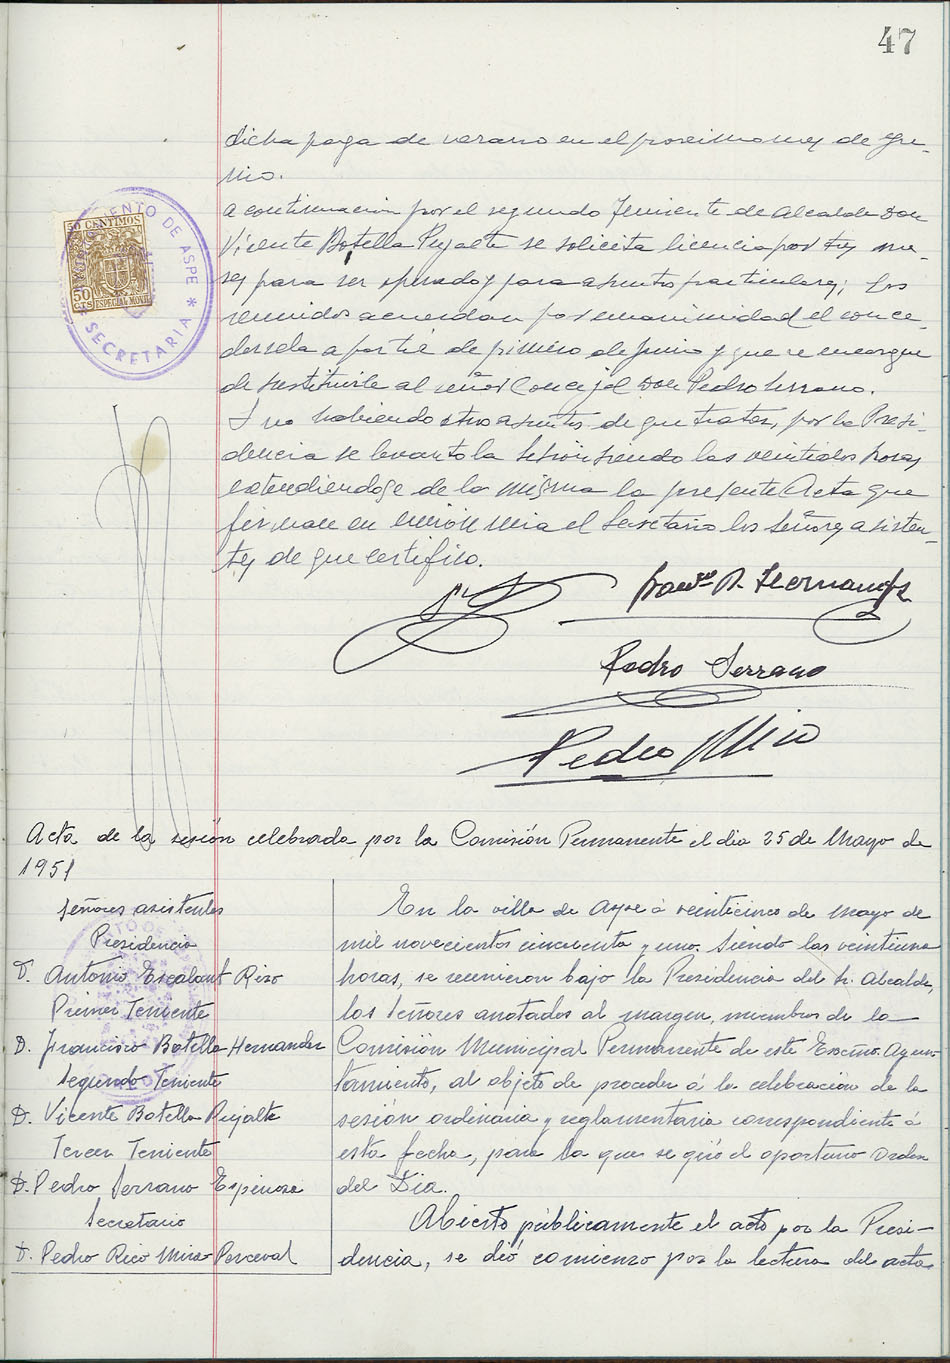 47
dicha paga de verano en el proximo mes de Ju-
nio.
A continuacion por el segundo Teniente de Alcalde Don
Vicente Botella Pujalte se solicita licencia por tres me-
ses para ser operado y para asuntos particulares; los
reunidos acuerdan por unanimidad el conce-
dersela a partir de primero de junio y que se encargue
de sustituirle al señor Concejal Don Pedro Serrano.
Y no habiendo otros asuntos de que tratar, por la Presi-
dencia se levanto la sesión siendo las veintidos horas
extendiendose de la misma la presente Acta que
firman en unión mia el Secretario los señores asisten-
tes de que certifico.
AYUNTAMIENTO DE ASPE * SECRETARIA *
50 CENTIMOS
50
CTS ESPECIAL MOVIL
Hernandez
Pedro Serrano
Pedro Miro
Acta de la sesión celebrada por la Comisión Permanente el dia 25 de Mayo de
1951
Señores asistentes
Presidencia
D. Antonio Escalant Rizo
Primer Teniente
D. Francisco Botella Hernandez
Segundo Teniente
D. Vicente Botella Pujalte
Tercer Teniente
D. Pedro Serrano Espinosa
Secretario
D. Pedro Rico Mira-Perceval
En la villa de Aspe á veinticinco de Mayo de
mil novecientos cincuenta y uno. Siendo las veintiuna
horas, se reunieron bajo la Presidencia del Sr. Alcalde,
los Señores anotados al margen, miembros de la
Comisión Municipal Permanente de este Excmo. Ayun-
tamiento, al objeto de proceder á la celebración de la
sesión ordinaria y reglamentaria correspondiente á
esta fecha, para la que se giró el oportuno Orden
del Dia.
Abierto públicamente el acto por la Presi-
dencia, se dió comienzo por la lectura del acta